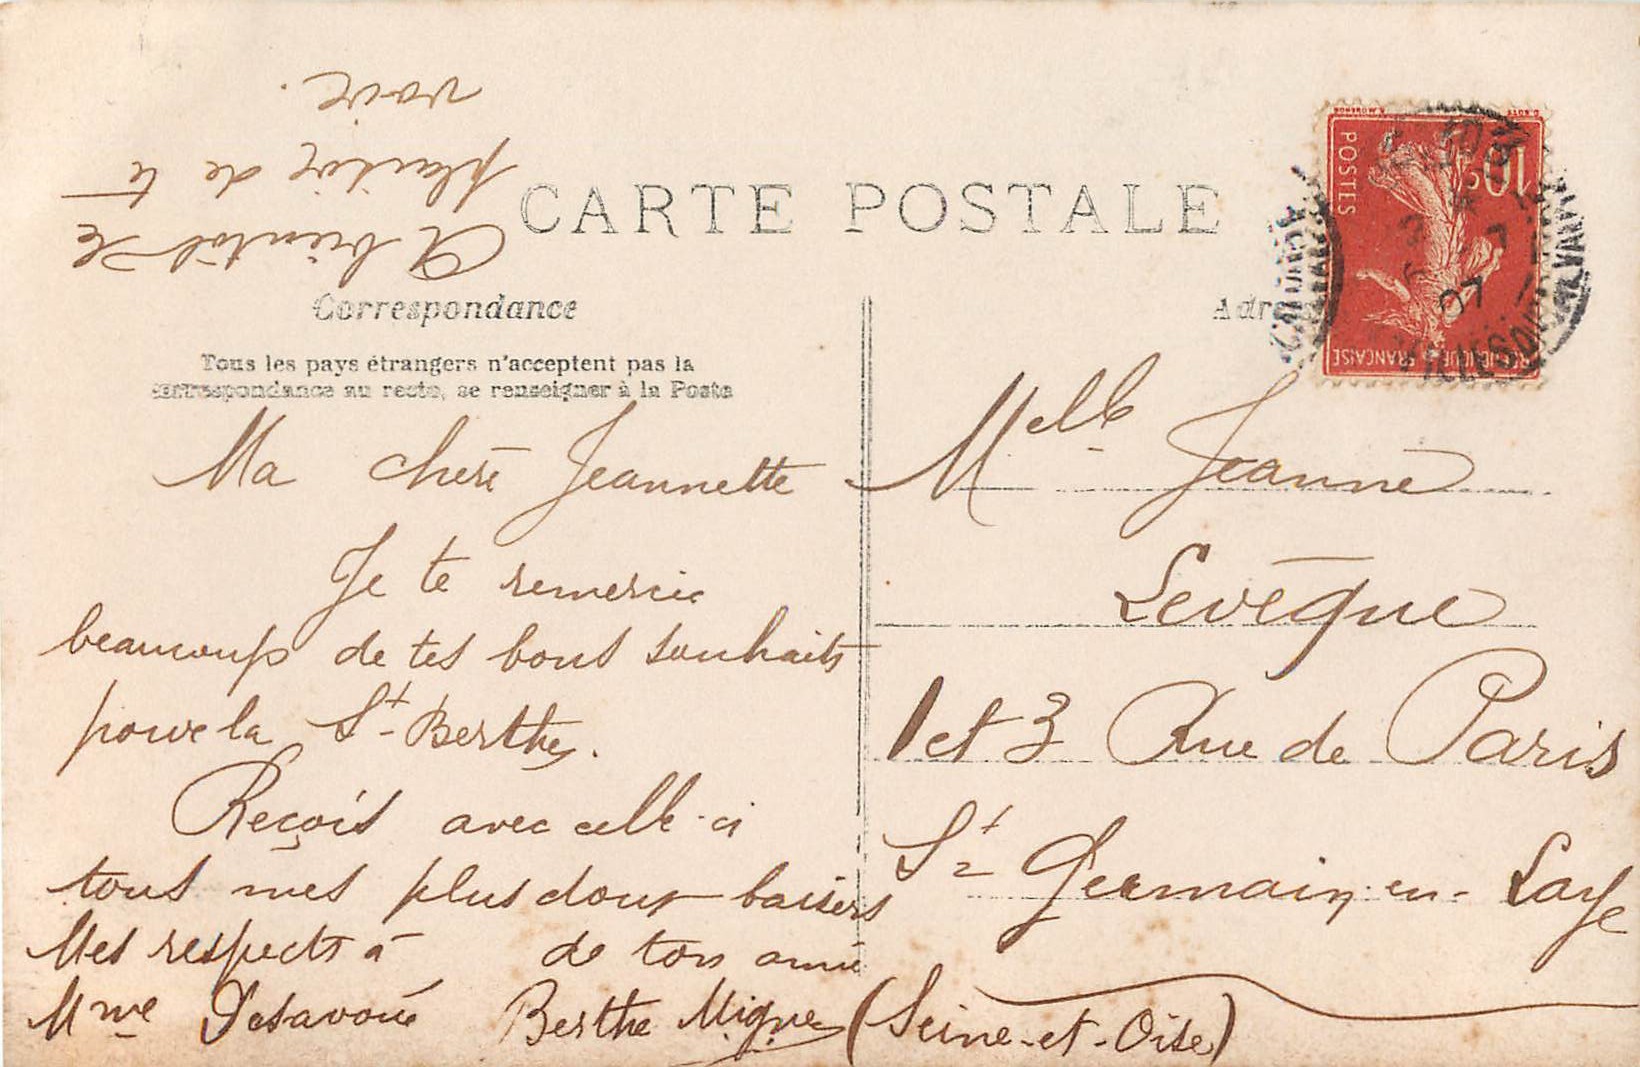 CARTE POSTALE
Correspondance
Tous les pays étrangers n'acceptent pas la
correspondance au recto, se renseigner à la Poste
Ma chère Jeannette
Je te remercie
beaucoup de tes bons souhaits
pour la St Berthe.
Reçois avec celle-ci
tous mes plus doux baisers
de ton amie
Berthe
Mes respects à
Mme Desavoué
A bientôt le
plaisir de te
voir.
POSTES
10c
REPUBLIQUE FRANCAISE
07
Melle Jeanne
Levêque
1 et 3 Rue de Paris
St Germain-en-Laye
(Seine-et-Oise)